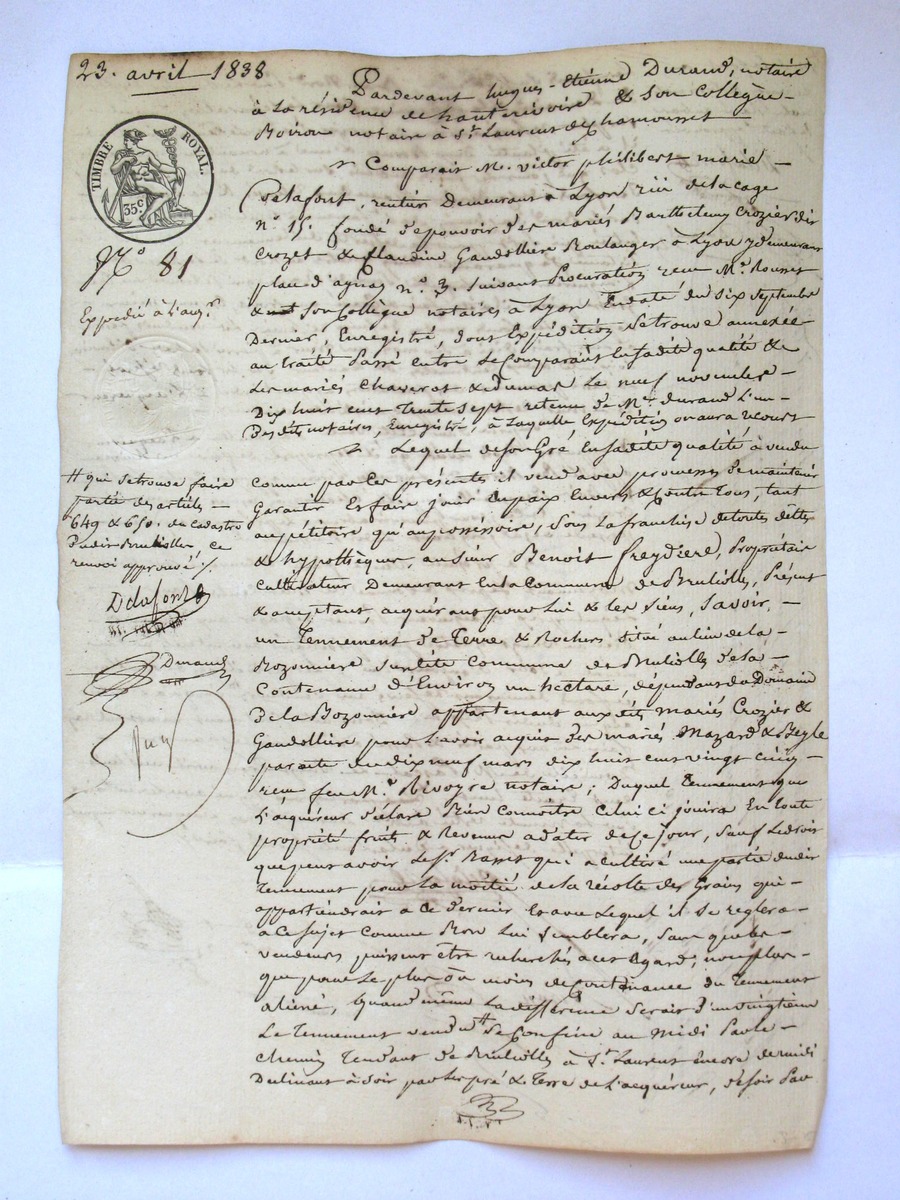 23. avril 1838
Pardevant hugues-Etiénne Durand, notaire
à la résidence de hauterivoire & son Collègue
Boiron notaire à St. Laurent de Chamousset
TIMBRE ROYAL.
35c
Comparait M. victor philibert marie
Delafont, rentier Demeurant à Lyon rüe de la cage
n° 15. fondé de pouvoir des mariés Barthelemy Crozier dit
N° 81
Crozet & Claudine Gaudollière Boulanger à Lyon y demeurant
place d'aynay n° 3. suivant Procuration reçue Me. Rousset
Expedié à l'aqr.
& son Collègue notaires à Lyon En date du six septembre
Dernier, Enregistré, dont Expédition se trouve annexée
au traité Passé entre le Comparant En sadite qualité &
Les mariés Chaverot & Dumas Le neuf novembre
Dix huit cent Trente sept retenu de Me. durand L'un
Des dits notaires, Enregistré, à laquelle Expédition on aura recours
Lequel de son Gré En sadite qualité à vendu
comme par Les présentes il vend avec promesses de maintenir
Garantir Et faire jouir En paix Envers & Contre Tous, tant
au pétitoire qu'au possessoire, sous La franchise de toutes dettes
& hypothèques, au sieur Benoit freydière, Propriétaire
cultivateur Demeurant En la Commune de Brulliolles, Présent
& acceptant, acquérant pour Lui & les siens, Savoir,
# qui se trouve faire
partie des articles
649 & 650. du Cadastre
Dudit Brulliolles, ce
renvoi approuvé ./.
Delafont
Durand
un Tennement de Terre & Rochers situé au lieu de la
Bozonnière sur dite Commune de Brulliolles de la
Contenance d'Environ un hectare, dépendant du Domaine
De la Bozonnière appartenant aux dits mariés Crozier &
Gaudollière pour L'avoir acquis des mariés Mazard & Beyle
par acte du dix neuf mars dix huit cent vingt cinq
reçu feu Me. Rivoyre notaire; Duquel Tennement que
L'acquéreur déclare Bien Connoitre Celui ci jouira En toute
propriété fruits & Revenus a dater de Ce jour, sauf Le droit
que peut avoir Le Sr. Rasset qui a cultivé une partie dudit
Tennement pour La moitié de la récolte des Grains qui
appartiendrait a Ce dernier Et avec Lequel il se reglera
a Ce sujet Comme Bon Lui Semblera, sans que les
vendeurs puissent être recherchés a cet Egard, non plus
que pour Le plus ou moins de Contenance du Tennement
aliéné, Quand même La différence serait d'un vingtième
Le Tennement vendu # Se Confine au Midi Par le
chemin Tendant de Brulliolles à St. Laurent encore de midi
Declinant à Soir par Les pré & Terre de L'acquéreur, de soir Par